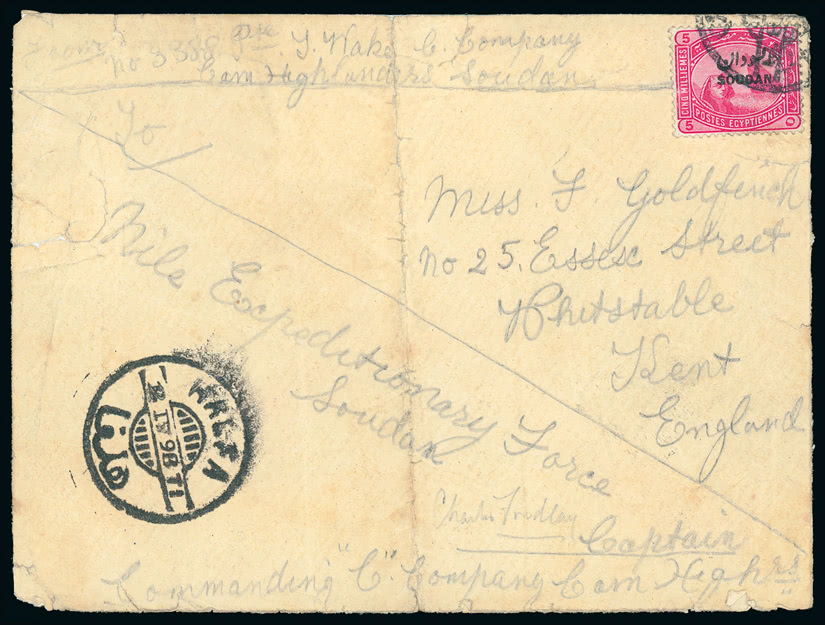 From
no 3388 Pte J. Wake C. Company
Cam Highlanders Soudan
السودان
SOUDAN
5 5
CINQ MILLIEMES
POSTES EGYPTIENNES
5
To
Miss. F. Goldfinch
no 25. Essex Street
Whitstable
Kent
England
Nile Expeditionary Force
Soudan
HALFA
2 IV 98 T1
حلفا
Charles Findlay
Captain
Commanding "C" Company Cam Highrs